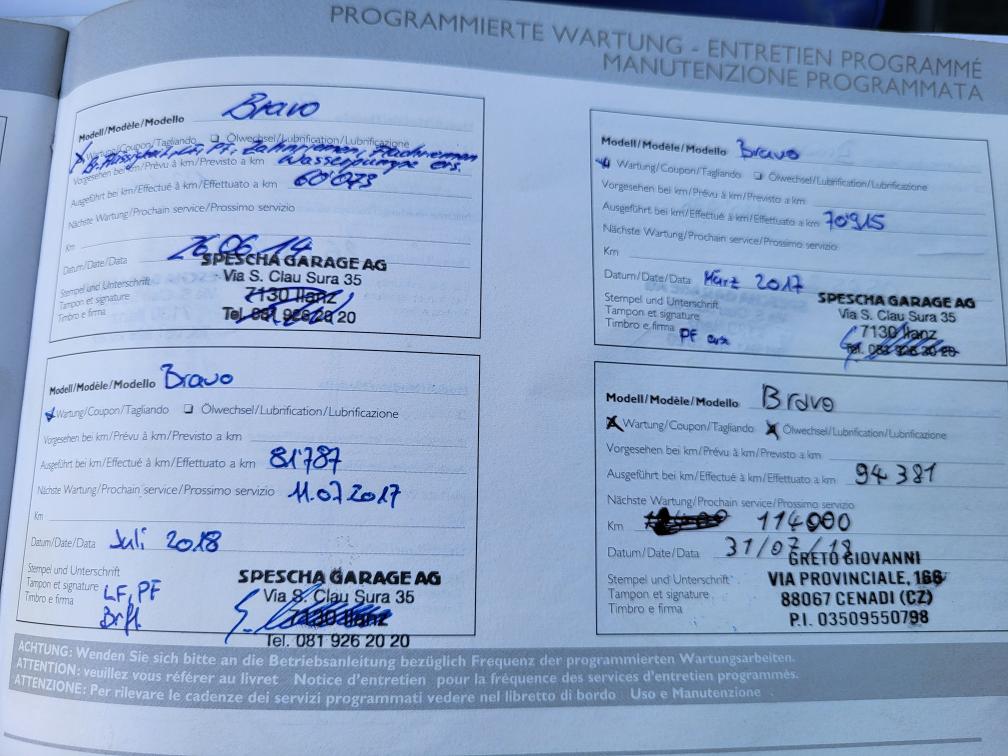 PROGRAMMIERTE WARTUNG - ENTRETIEN PROGRAMMÉ
MANUTENZIONE PROGRAMMATA
Modell/Modèle/Modello Bravo
Wartung/Coupon/Tagliando Ölwechsel/Lubrification/Lubrificazione
Br.flüssigkeit, LF, PF, Zahnriemen, Flachriemen
Vorgesehen bei km/Prévu à km/Previsto a km Wasserpumpe ers.
Ausgeführt bei km/Effectué à km/Effettuato a km 60'073
Nächste Wartung/Prochain service/Prossimo servizio
Km
Datum/Date/Data 26.06.14
Stempel und Unterschrift
Tampon et signature
Timbro e firma
SPESCHA GARAGE AG
Via S. Clau Sura 35
7130 Ilanz
Tel. 081 926 20 20
Modell/Modèle/Modello Bravo
Wartung/Coupon/Tagliando Ölwechsel/Lubrification/Lubrificazione
Vorgesehen bei km/Prévu à km/Previsto a km
Ausgeführt bei km/Effectué à km/Effettuato a km 70'915
Nächste Wartung/Prochain service/Prossimo servizio
Km
Datum/Date/Data März 2017
Stempel und Unterschrift
Tampon et signature
Timbro e firma PF
SPESCHA GARAGE AG
Via S. Clau Sura 35
7130 Ilanz
Tel. 081 926 20 20
Modell/Modèle/Modello Bravo
Wartung/Coupon/Tagliando Ölwechsel/Lubrification/Lubrificazione
Vorgesehen bei km/Prévu à km/Previsto a km
Ausgeführt bei km/Effectué à km/Effettuato a km 81'787
Nächste Wartung/Prochain service/Prossimo servizio 11.07.2017
Km
Datum/Date/Data Juli 2018
Stempel und Unterschrift
Tampon et signature LF, PF
Timbro e firma Brfl.
SPESCHA GARAGE AG
Via S. Clau Sura 35
7130 Ilanz
Tel. 081 926 20 20
Modell/Modèle/Modello Bravo
Wartung/Coupon/Tagliando Ölwechsel/Lubrification/Lubrificazione
Vorgesehen bei km/Prévu à km/Previsto a km
Ausgeführt bei km/Effectué à km/Effettuato a km 94 381
Nächste Wartung/Prochain service/Prossimo servizio
Km 114000
Datum/Date/Data 31/07/18
Stempel und Unterschrift
Tampon et signature
Timbro e firma
GRETO GIOVANNI
VIA PROVINCIALE, 166
88067 CENADI (CZ)
P.I. 03509550798
ACHTUNG: Wenden Sie sich bitte an die Betriebsanleitung bezüglich Frequenz der programmierten Wartungsarbeiten.
ATTENTION: veuillez vous référer au livret Notice d'entretien pour la fréquence des services d'entretien programmés.
ATTENZIONE: Per rilevare le cadenze dei servizi programmati vedere nel libretto di bordo Uso e Manutenzione